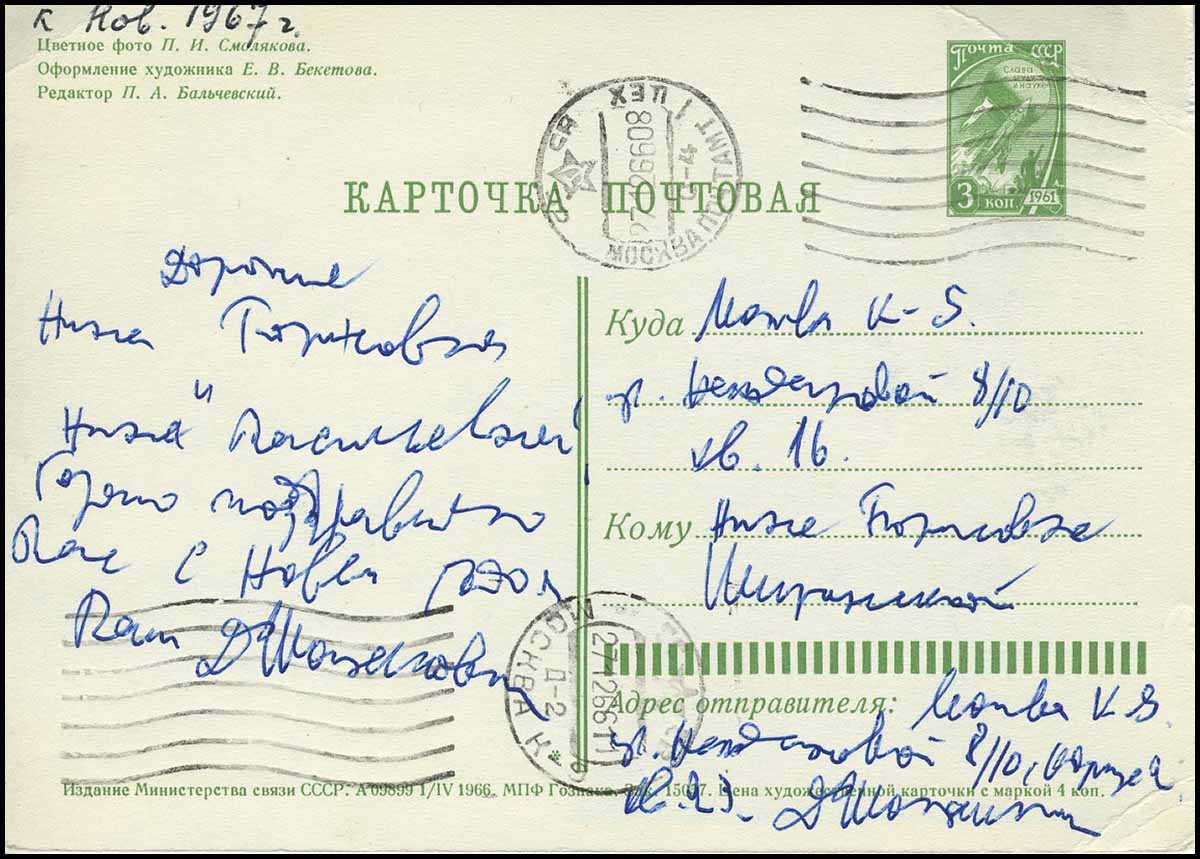 к Нов. 1967 г.
Цветное фото П. И. Смолякова.
Оформление художника Е. В. Бекетова.
Редактор П. А. Бальчевский.
Почта СССР
Слава
и науке
3 коп 1961
МОСКВА ПОЧТАМТ 1 ЦЕХ
КАРТОЧКА ПОЧТОВАЯ
Дорогие
Нина Борисовна
и
Нина Васильевна!
Горячо поздравляю
Вас с Новым годом
Ваш Д Шостакович
Куда Москва К-9.
ул. Неждановой 8/10
кв. 16.
Кому Нине Борисовне
МОСКВА К-9
27 12 66 11
Адрес отправителя: Москва К 9.
ул. Неждановой 8/10, корпус 2
кв. 23. Д Шостакович
Издание Министерства связи СССР. А 09899 1/IV 1966. МПФ Гознака. Зак. 15037. Цена художественной карточки с маркой 4 коп.